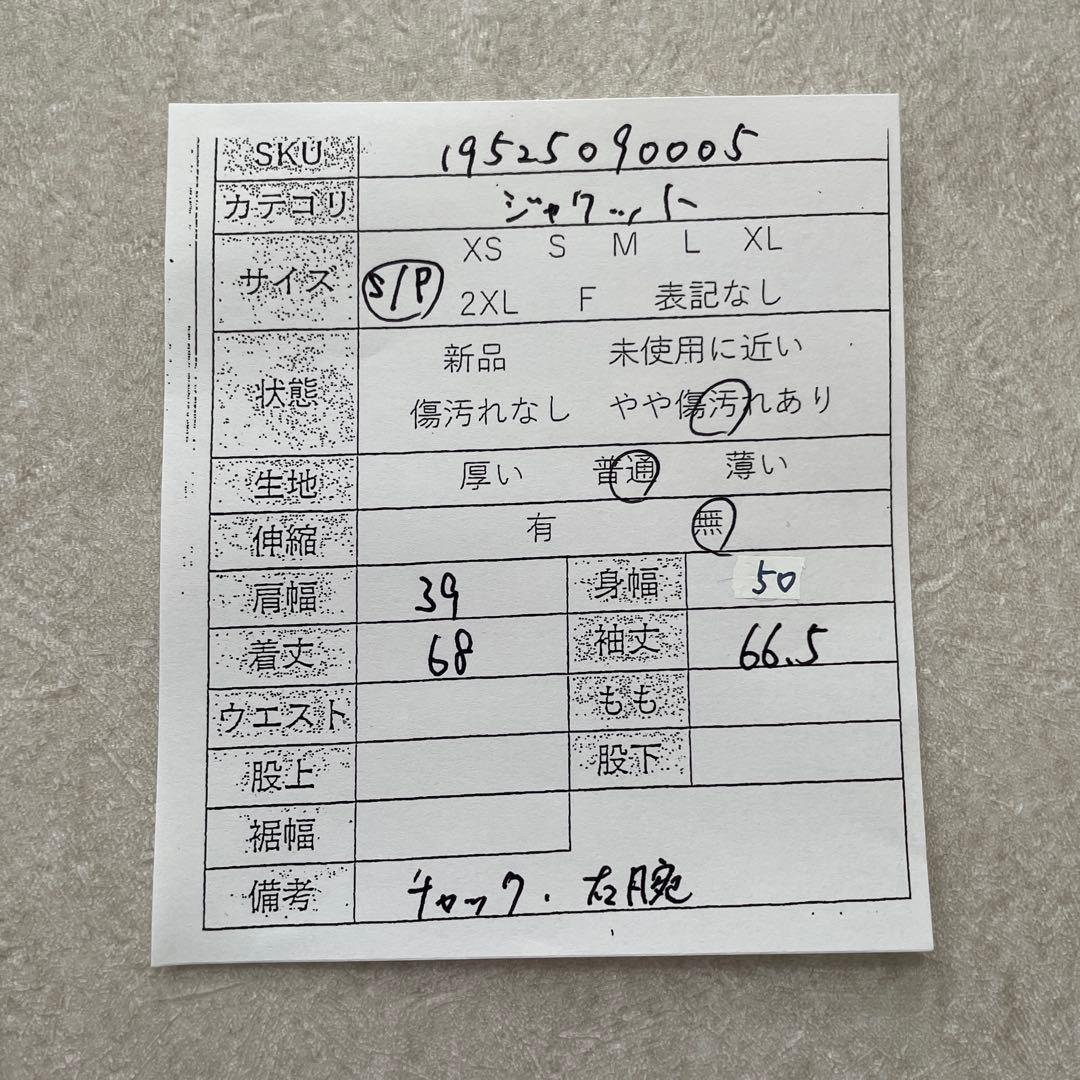 SKU 19525090005
カテゴリ ジャケット
サイズ S/P XS S M L XL
2XL F 表記なし
状態 新品 未使用に近い
傷汚れなし やや傷汚れあり
生地 厚い 普通 薄い
伸縮 有 無
肩幅 39 身幅 50
着丈 68 袖丈 66.5
ウエスト もも
股上 股下
裾幅
備考 チャック. 左腕